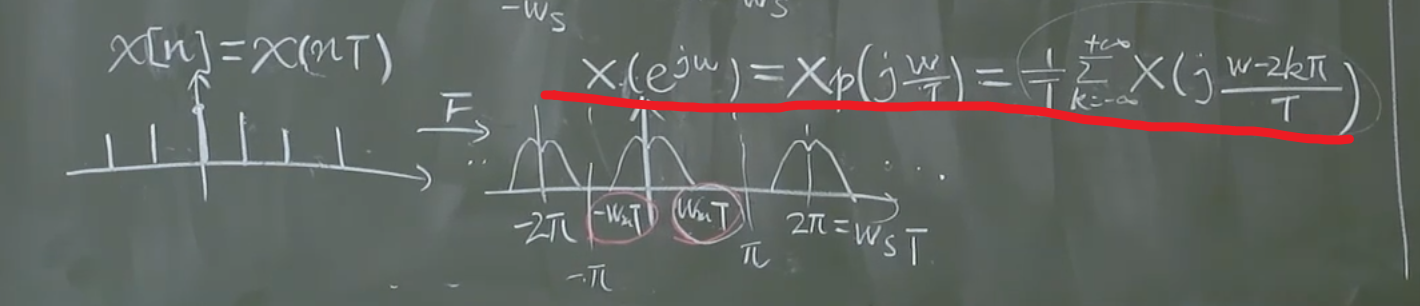 -ws ws
x[n]=x(nT)
X(e^{jw})=Xp(j\frac{w}{T})=\frac{1}{T}\sum_{k=-∞}^{+∞}X(j\frac{w-2kπ}{T})
F
-2π -wₘT wₘT 2π=wsT
-π π